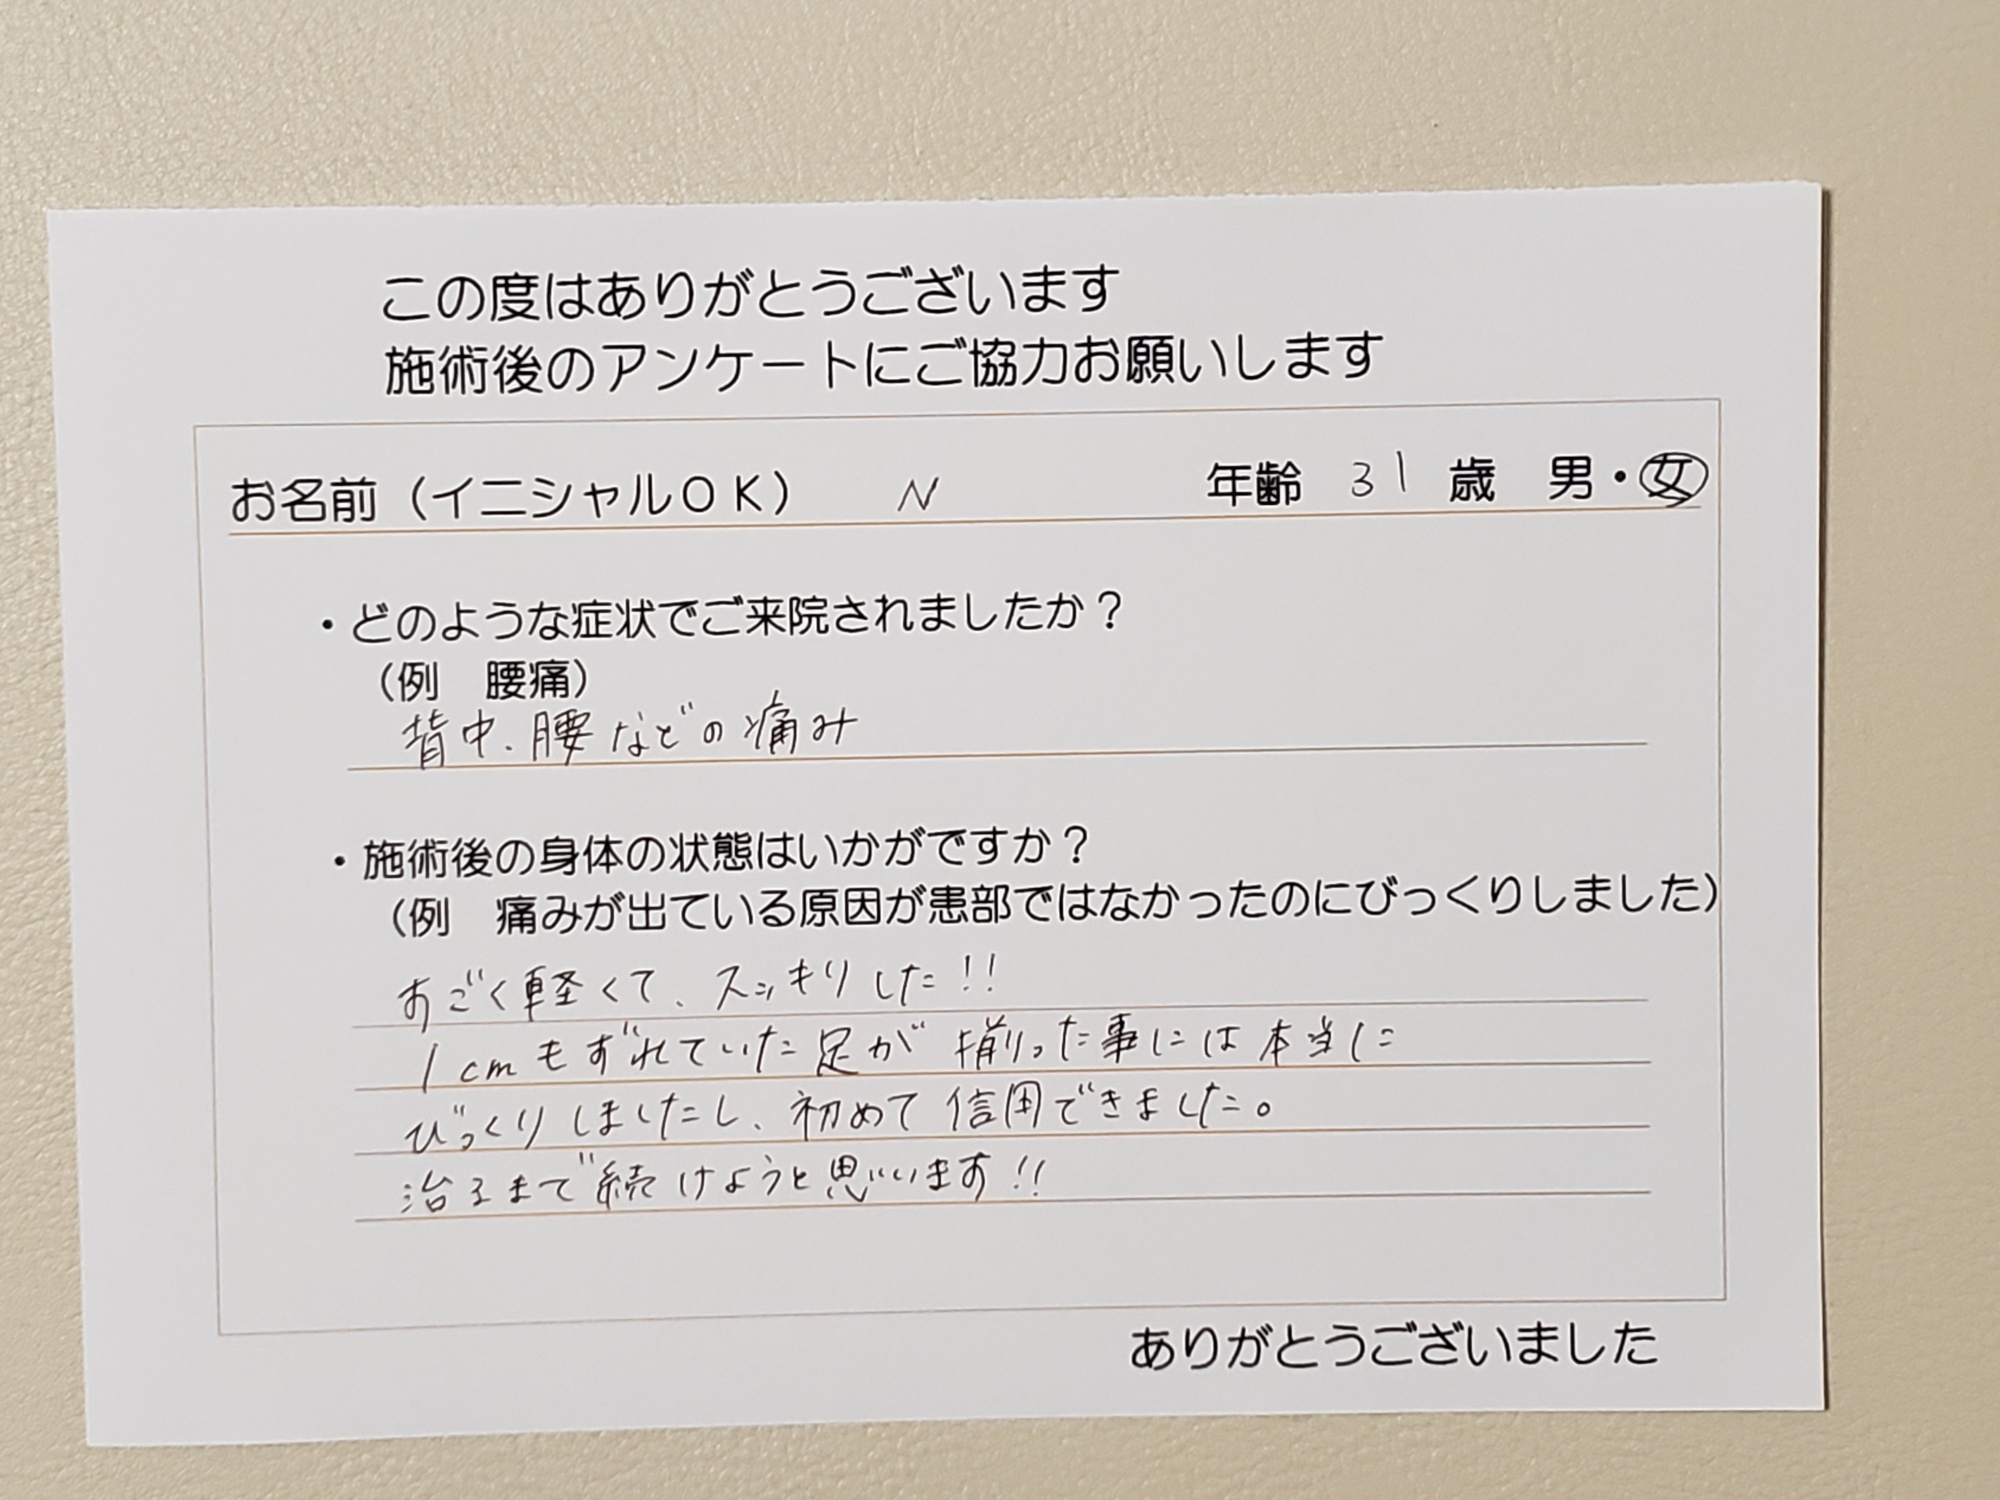 この度はありがとうございます
施術後のアンケートにご協力お願いします
お名前（イニシャルＯＫ） N 年齢 31 歳 男・女
・どのような症状でご来院されましたか？
（例 腰痛）
背中、腰などの痛み
・施術後の身体の状態はいかがですか？
（例 痛みが出ている原因が患部ではなかったのにびっくりしました）
すごく軽くて、スッキリした!!
1cmもずれていた足が揃った事には本当に
びっくりしましたし、初めて信用できました。
治るまで続けようと思います!!
ありがとうございました